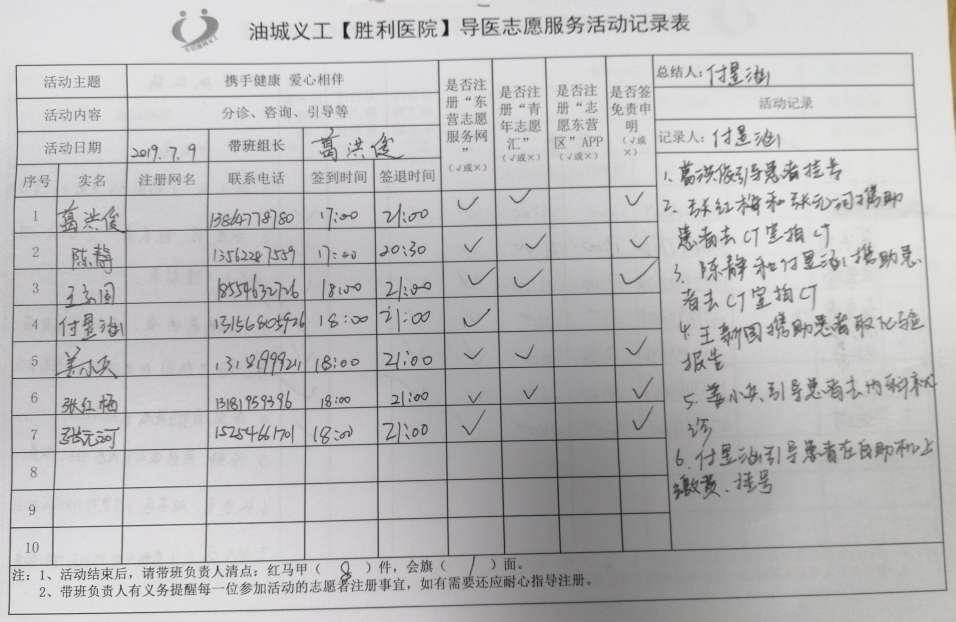 油城义工【胜利医院】导医志愿服务活动记录表
活动主题 携手健康 爱心相伴
活动内容 分诊、咨询、引导等
活动日期 2019.7.9 带班组长 葛洪俊
是否注册“东营志愿服务网” (√或×)
是否注册“青年志愿汇” (√或×)
是否注册“志愿东营区”APP (√或×)
是否签免责申明 (√或×)
序号 实名 注册网名 联系电话 签到时间 签退时间
1 葛洪俊 17:00 21:00 √ √ √
2 陈静 17:00 20:30 √ √ √
3 18:00 21:00 √ √ √
4 付昱涵 18:00 21:00 √
5 姜小英 18:00 21:00 √ √ √
6 张红梅 13181959396 18:00 21:00 √ √ √
7 张元珂 15254661701 18:00 21:00 √ √
8
9
10
总结人：付昱涵
活动记录
记录人：付昱涵
1. 葛洪俊引导患者挂号
2. 张红梅和张元珂携助
患者去CT室拍CT
3. 陈静和付昱涵携助患
者去CT室拍CT
4. 王新国携助患者取化验
报告
5. 姜小英引导患者去内科
诊
6. 付昱涵引导患者在自助机上
缴费、挂号
注：1、活动结束后，请带班负责人清点：红马甲（ 8 ）件，会旗（ ）面。
2、带班负责人有义务提醒每一位参加活动的志愿者注册事宜，如有需要还应耐心指导注册。